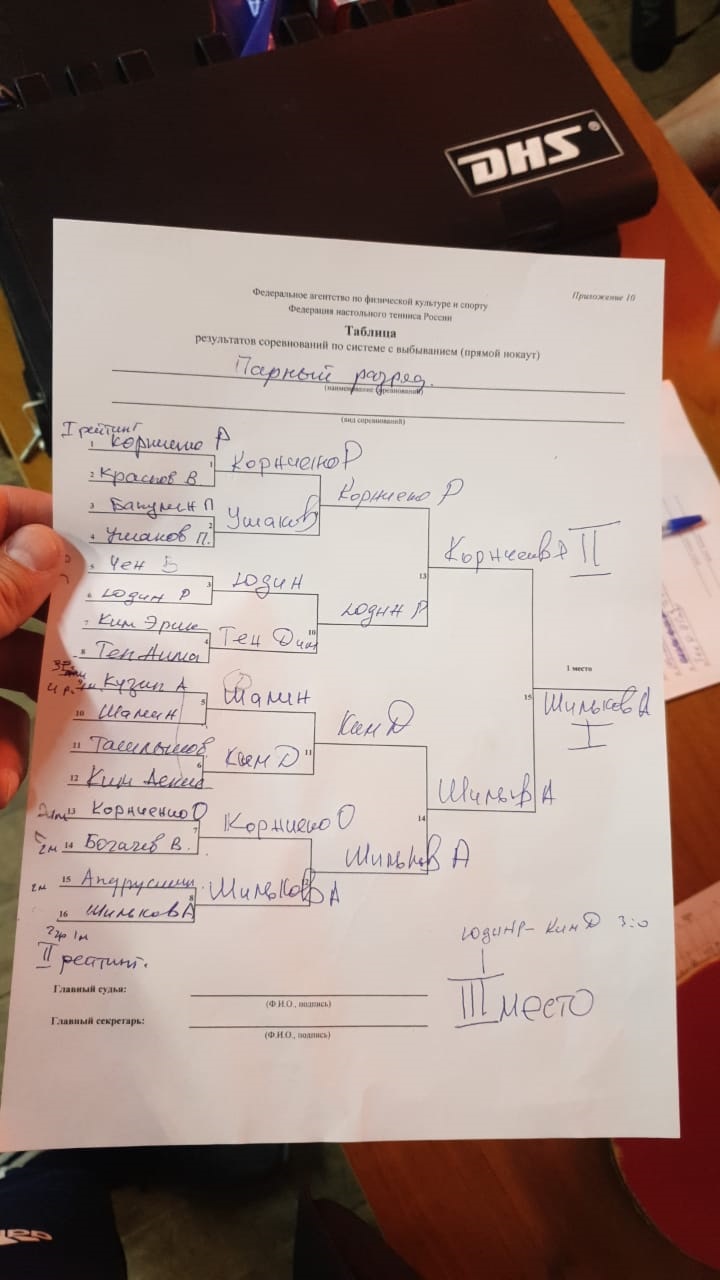 DHS®
Приложение 10
Федеральное агентство по физической культуре и спорту
Федерация настольного тенниса России
Таблица
результатов соревнований по системе с выбыванием (прямой нокаут)
Парный разряд.
(наименование соревнований)
(вид соревнований)
I рейтинг
1 Корниенко Р
1
Корниенко Р
2 Краснов В.
3 Бакулин П
2
Ушаков
Корниенко Р
4 Ушаков П.
13
Корниенко Р II
5 Чен Б
3
Юдин
6 Юдин Р
10
Юдин Р
7 Ким Эрик
4
Тен Дим
8 Тен Дима
1 место
15
Шильков А
I
Кузин А
5
Шамин
10 Шамин
11
Ким Д
11
6
Ким Д
12 Ким Денис
14
Шильков А
2м 13 Корниенко О
7
Корниенко О
2м 14 Богачев В.
Шильков А
2м 15
8
Шильков А
16 Шильков А
2гр 1м
II рейтинг.
Юдин Р - Ким Д 3:0
III место
Главный судья:
(Ф.И.О., подпись)
Главный секретарь:
(Ф.И.О., подпись)